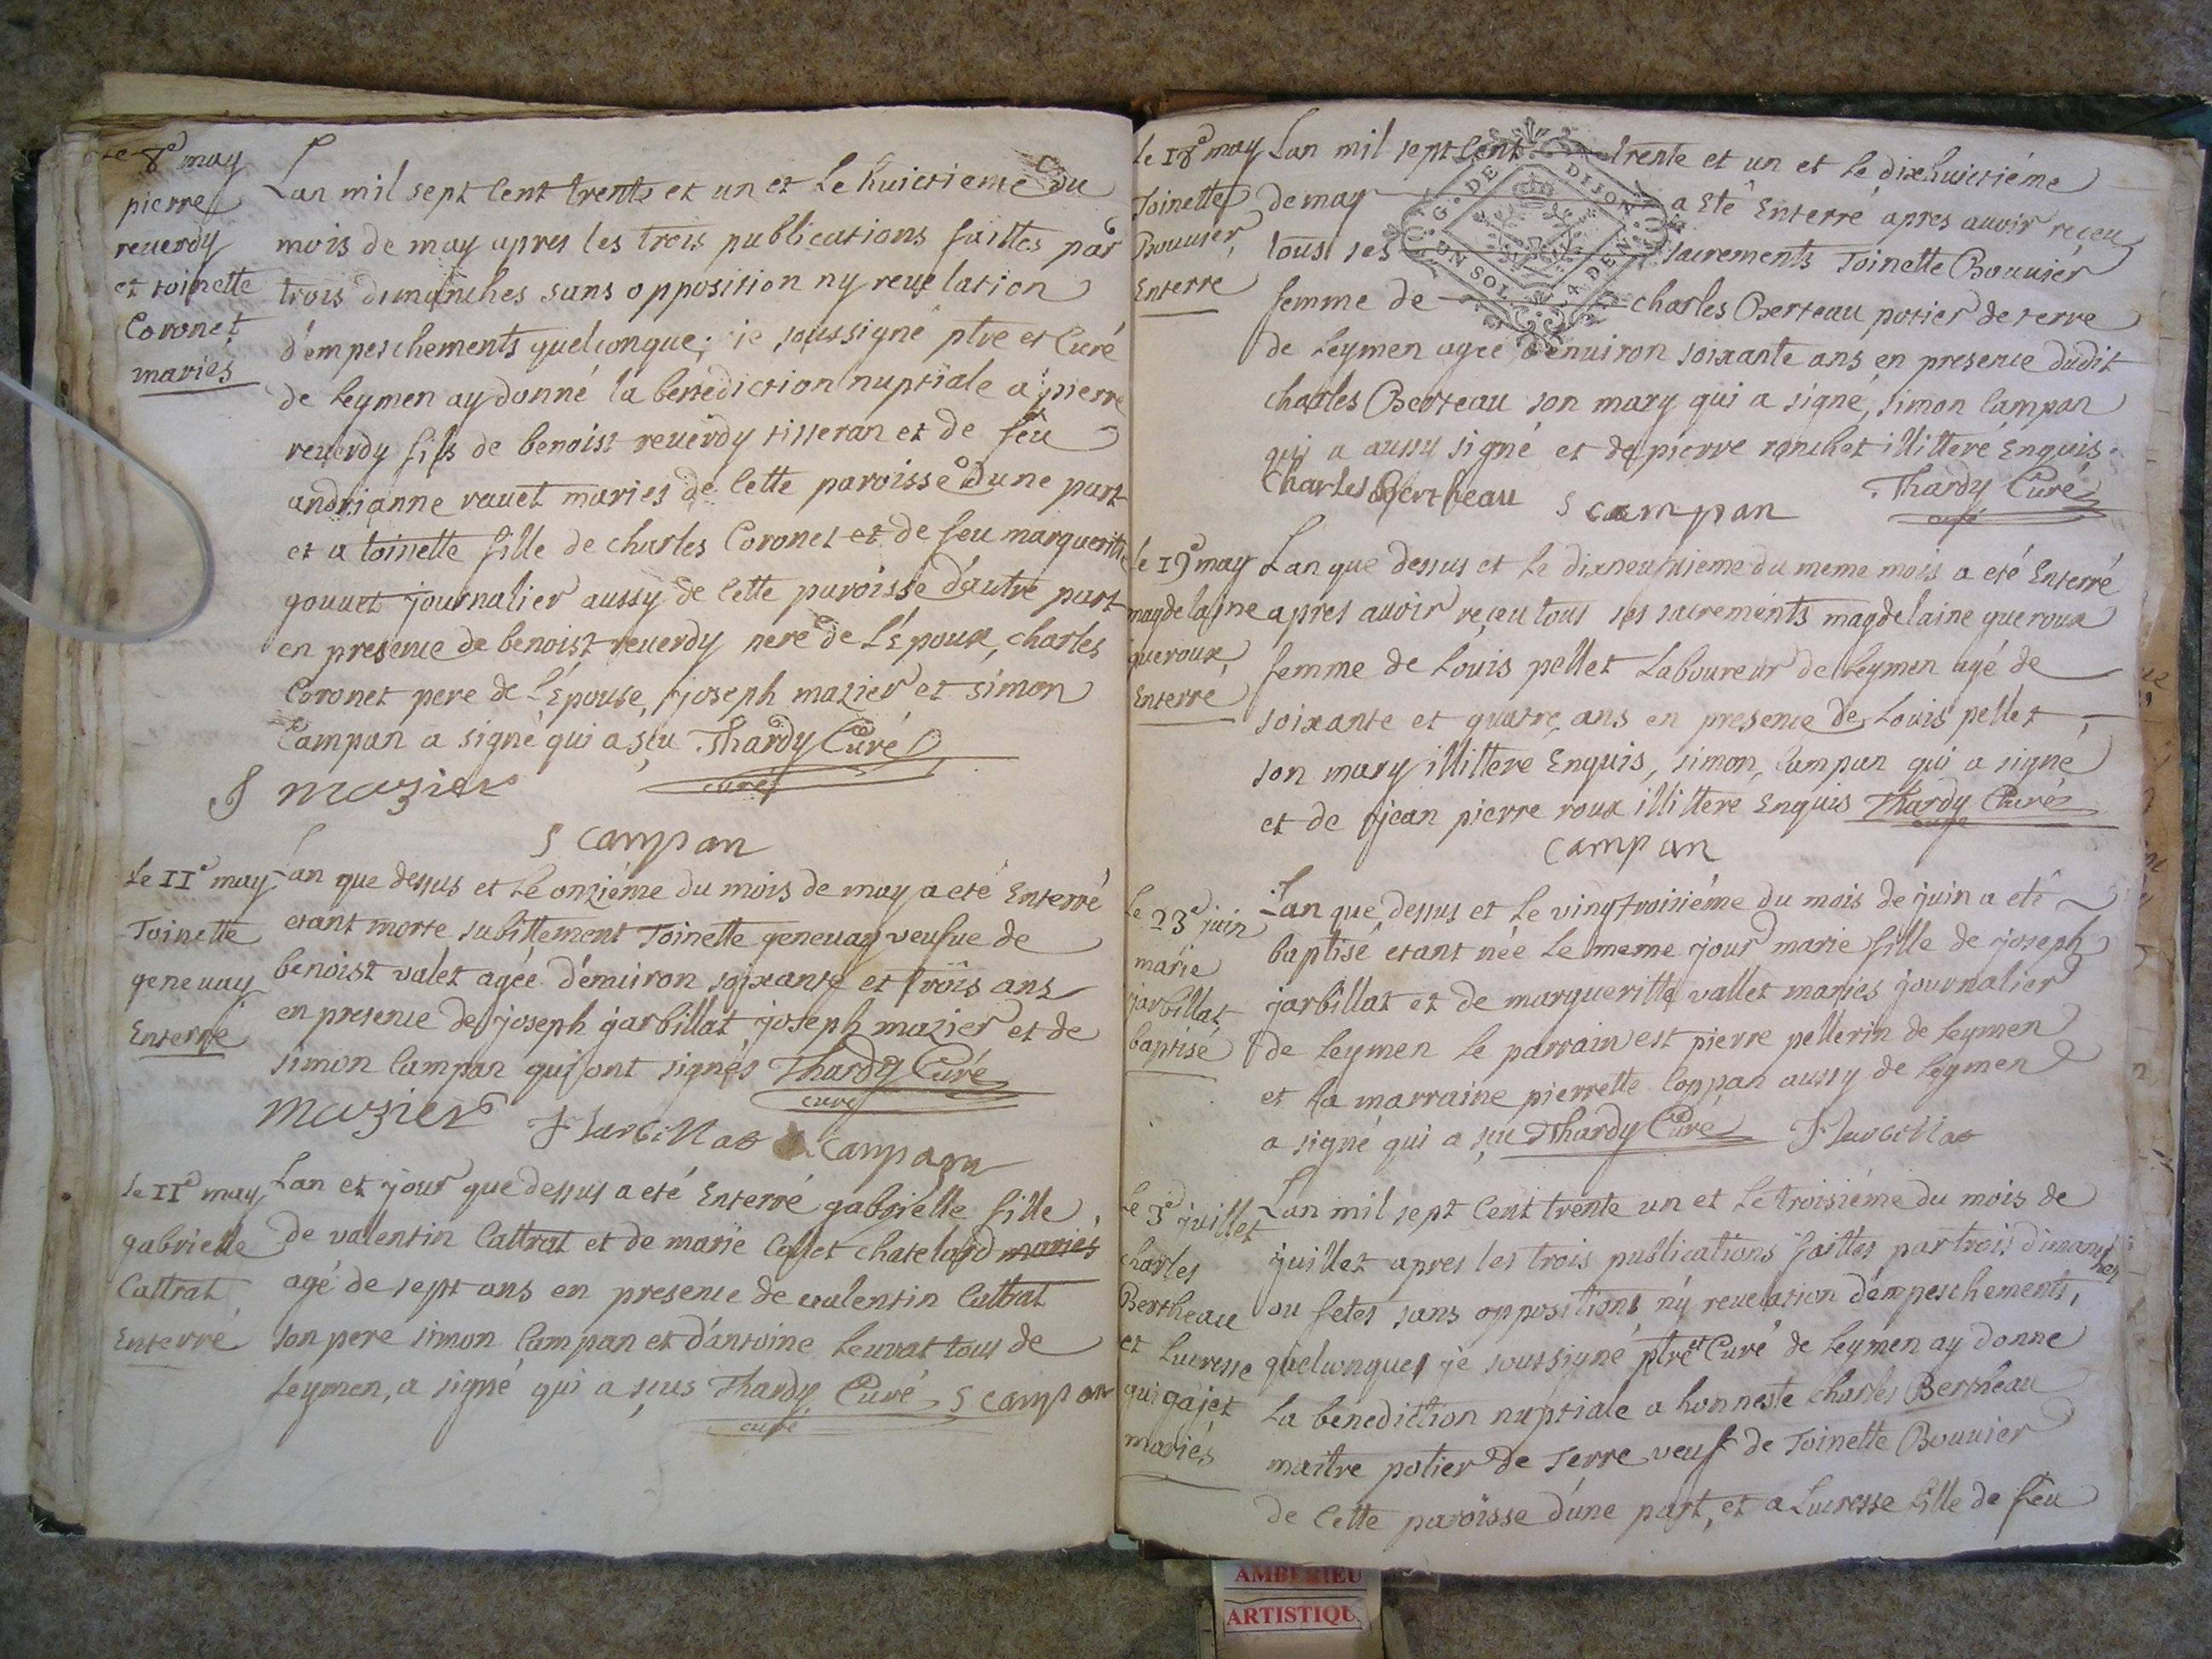 Le 8e may
pierre
reuerdy
et toinette
Coronet
mariés
Lan mil sept Cent trente et un et Le huictieme du
mois de may apres les trois publications faittes par
trois dimanches sans opposition ny reuelation
d'empeschements quelconque; ie soussigné ptre et Curé
de Leymen ay donné la benediction nuptiale a pierre
reuerdy fils de benoist reuerdy tisseran et de feu
andrianne rauet maries de Cette paroisse d'une part
et a toinette fille de charles Coronet et de feu margueritte
gouuet journalier aussy de Cette paroisse d'autre part
en presence de benoist reuerdy pere de L'Epoux, charles
Coronet pere de L'Epouse, joseph mazier et simon
Campan a signé qui a sçu Thardy Curé
curé
J mazier
S campan
Le 11e may
Toinette
geneuay
Enterré
Lan que dessus et Le onziéme du mois de may a eté Enterré
etant morte subittement Toinette geneuay veufue de
benoist valet agée d'enuiron soixante et trois ans
en presence de joseph jarbillat joseph mazier et de
simon Campan qui ont signés Thardy Curé
curé
mazier J Jarbillat S campan
Le 11e may
gabrielle
Cattrat
Enterré
Lan et jour que dessus a eté Enterré gabrielle fille
de valentin Cattrat et de marie Collet chatelard mariés
agé de sept ans en presence de valentin Cattrat
son pere simon Campan et d'antoine Leurat tous de
Leymen, a signé qui a sçus Thardy Curé S campan
curé
Le 18e may
Toinette
Bouuier
Enterré
Lan mil sept Cent trente et un et Le dixhuictiéme
de may a Eté Enterré apres auoir reçeu
tous ses sacrements Toinette Bouuier
femme de charles Berteau potier de terre
de Leymen agée d'enuiron soixante ans en presence dudit
charles Berteau son mary qui a signé, simon Campan
qui a aussy signé et de pierre ronchet illitteré Enquis.
Charles Bertheau S campan Thardy Curé
curé
Le 19e may
magdelaine
queroux
Enterré
Lan que dessus et Le dixneufuieme du meme mois a eté Enterré
apres auoir reçeu tous ses sacrements magdelaine queroux
femme de Louis pellet Laboureur de Leymen agé de
soixante et quatre ans en presence de Louis pellet,
son mary illittere Enquis, simon, Campan qui a signé
et de jean pierre roux illittere Enquis Thardy Curé
curé
campan
Le 23e juin
marie
jarbillat
baptisé
Lan que dessus et Le vingtroisiéme du mois de juin a eté
baptisé etant née Le meme jour marie fille de joseph
jarbillat et de margueritte vallet maries journalier
de Leymen Le parrain est pierre pellerin de Leymen
et La marraine pierrette Coppan aussy de Leymen
a signé qui a sçu Thardy Curé J Jarbillat
Le 3e juillet
charles
Bertheau
et Lucresse
guigajet
mariés
Lan mil sept Cent trente un et Le troisiéme du mois de
juillet apres les trois publications faittes par trois dimanches
ou fetes sans oppositions ny reuelation d'empeschements,
quelconques je soussigné ptre et Curé de Leymen ay donné
La benediction nuptiale a honneste charles Bertheau
maitre potier de Terre veuf de Toinette Bouuier
de Cette paroisse d'une part, et a Lucresse fille de feu
G. DE DIJON
UN SOL 4 DEN
AMBERIEU
ARTISTIQU